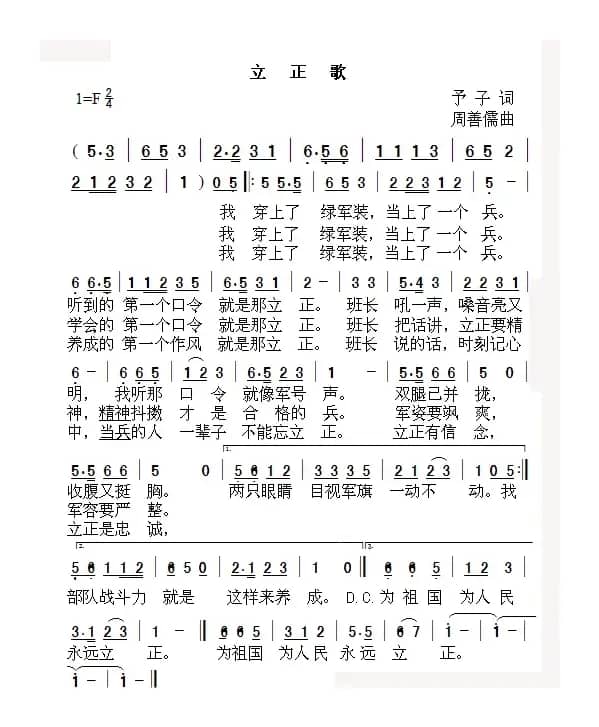 立正歌
1=F 2/4
予子词
周善儒曲
( 5·3 | 6 5 3 | 2·2 3 1 | 6·5 5 6 | 1 1 1 1 3 | 6 5 2 |
2 1 2 3 2 | 1 ) 0 5 |: 5 5·5 | 3 5 6 5 3 | 2 2 3 2 1 | 5 - |
我 穿上了 绿军装，当上了一个 兵。
我 穿上了 绿军装，当上了一个 兵。
我 穿上了 绿军装，当上了一个 兵。
6 6·5 | 1 1 2 3 5 | 6·5 3 1 | 2 - | 3 3 | 5·4 3 | 2 2 3 1 |
听到的 第一个口令 就是那立 正。班长 吼一声，嗓音亮又
学会的 第一个口令 就是那立 正。班长 把话讲，立正要精
养成的 第一个作风 就是那立 正。班长 说的话，时刻记心
6 - | 6·5 5 | 1 2 3 | 6·5 2 3 | 1 - | 5·5 6 6 | 5 0 |
明，我听那 口 令 就像军号 声。 双腿已并 拢，
神，精神抖擞 才 是 合 格的 兵。 军姿要飒 爽，
中，当兵的人 一辈子 不能忘立 正。 立正有信 念，
5·5 6 6 | 5 0 | 1. 5 6 1 2 | 3 3 3 5 | 2 1 2 3 | 1 0 5 :|
收腹又挺 胸。 两只眼睛 目视军旗 一动不 动。我
军容要严 整。
立正是忠 诚，
2. 5 6 1 1 2 | 6 5 0 | 2·1 2 3 | 1 0 || 2. 6 6 | 5 6 | 1 2 |
部队战斗力 就是 这样来养 成。D.C.为 祖 国 为人民
3·1 2 3 | 1 - || 6·5 | 6 1 2 3 | 5·5 | 6 7 | 1 - | 1 - |
永远立 正。 为祖国 为人民 永远 立 正。
1 - | 1 - ||